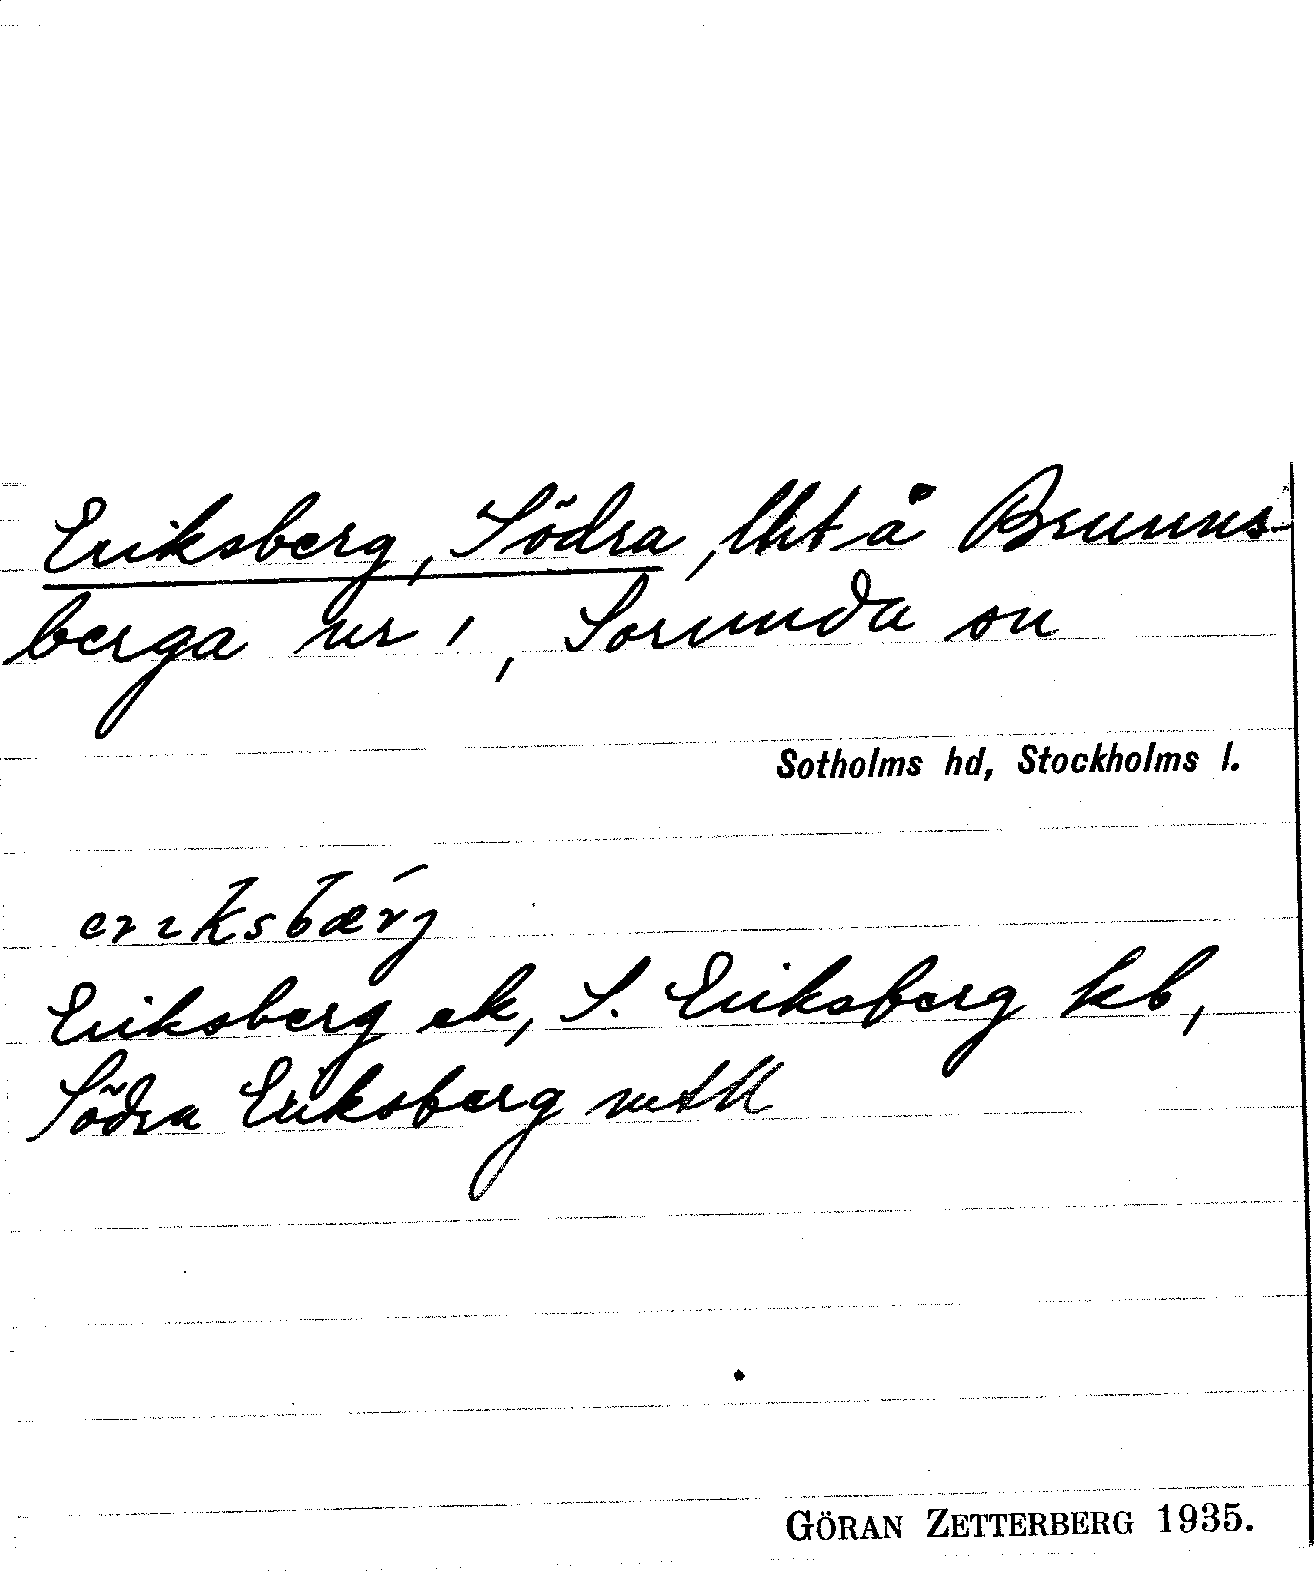 Eriksberg, Södra, lht å Brunns-
berga nr 1, Sorunda sn
Sotholms hd, Stockholms l.
Eriksberg ek, S. Eriksberg kb,
Södra Eriksberg mtll
GÖRAN ZETTERBERG 1935.